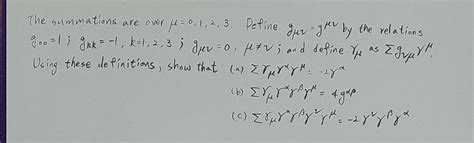 The summations are over μ=0,1,2,3. Define g_{μν}=g^{μν} by the relations
g_{00}=1; g_{kk}=-1, k=1,2,3; g_{μν}=0, μ≠ν; and define γ_μ as Σg_{νμ}γ^μ.
Using these definitions, show that (a) Σγ_μγ^αγ^μ=-2γ^α
(b) Σγ_μγ^αγ^βγ^μ=4g^{αβ}
(c) Σγ_μγ^αγ^βγ^νγ^μ=-2γ^νγ^βγ^α